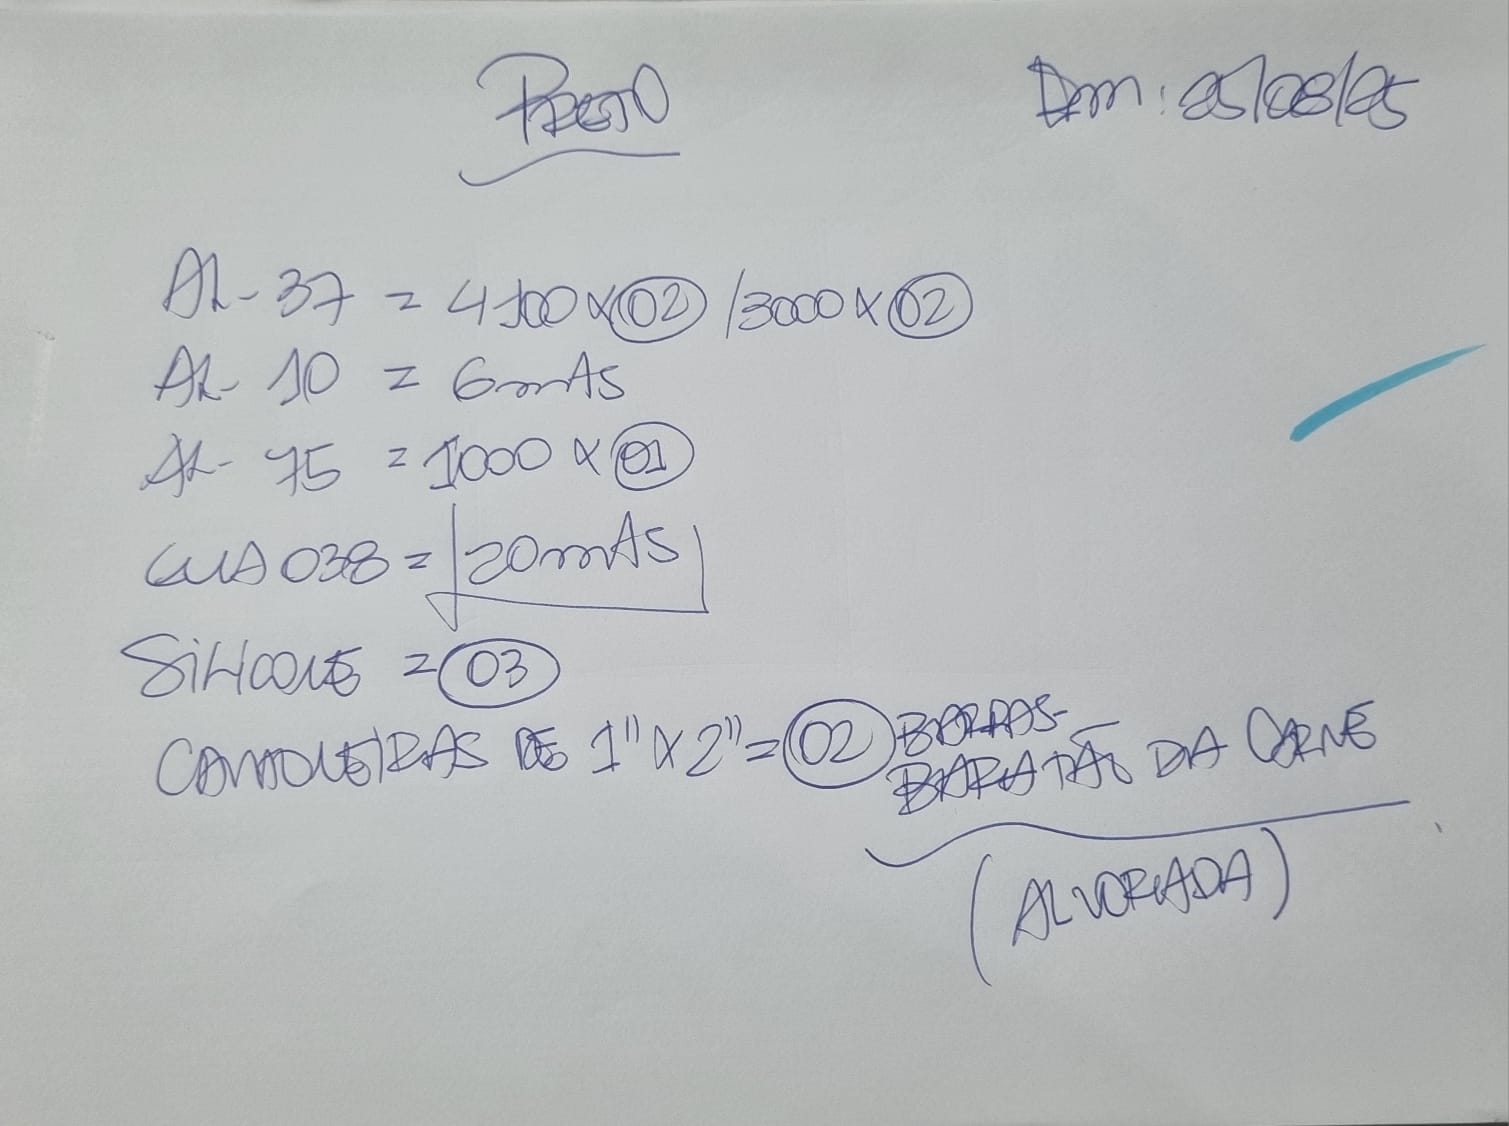 PRETO
Dm: 25/08/25
AL-37 = 4100 x 02 / 3000 x 02
AL-10 = 6mts
AL-75 = 1000 x 01
038 = 20mts
SILICONE = 03
CANTONEIRAS DE 1" X 2" = 02 BARRAS-
BARATÃO DA CARNE
(ALVORADA)